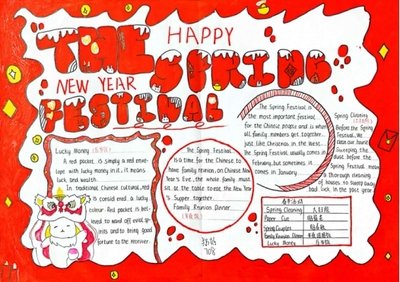 HAPPY
THE SPRING
NEW YEAR
FESTIVAL
Lucky Money
A red pocket is simply a red enve-
lope with lucky money in it, it means
luck and wealth.
In traditional Chinese cultural, red
is considered a lucky
colour. Red pocket is bel-
ieved to ward off evil spi-
rits and to bring good
fortune to the receiver.
The Spring Festival
is a time for the Chinese to
home family reunion, on Chinese New
Year's Eve, the whole family must
sit at the table to eat the New Year
's Supper together.
Family Reunion Dinner
The Spring Festival is
the most important festival
for the Chinese people and is when
all family members get together
just like Christmas in the West.
Spring Festival usually comes in
February, but sometimes it
comes in January.
Spring Cleaning
Before the Spring
Festival, We
clean our house
sweeping the
dust before the
Spring Festival means
a thorough cleaning
of houses to sweep away
bad luck in the past year.
春节活动
Spring Cleaning 大扫除
Paper Cut 贴窗花
Spring Couplets 贴春联
Family Reunion Dinner 年夜团圆饭
Lucky Money 压岁钱